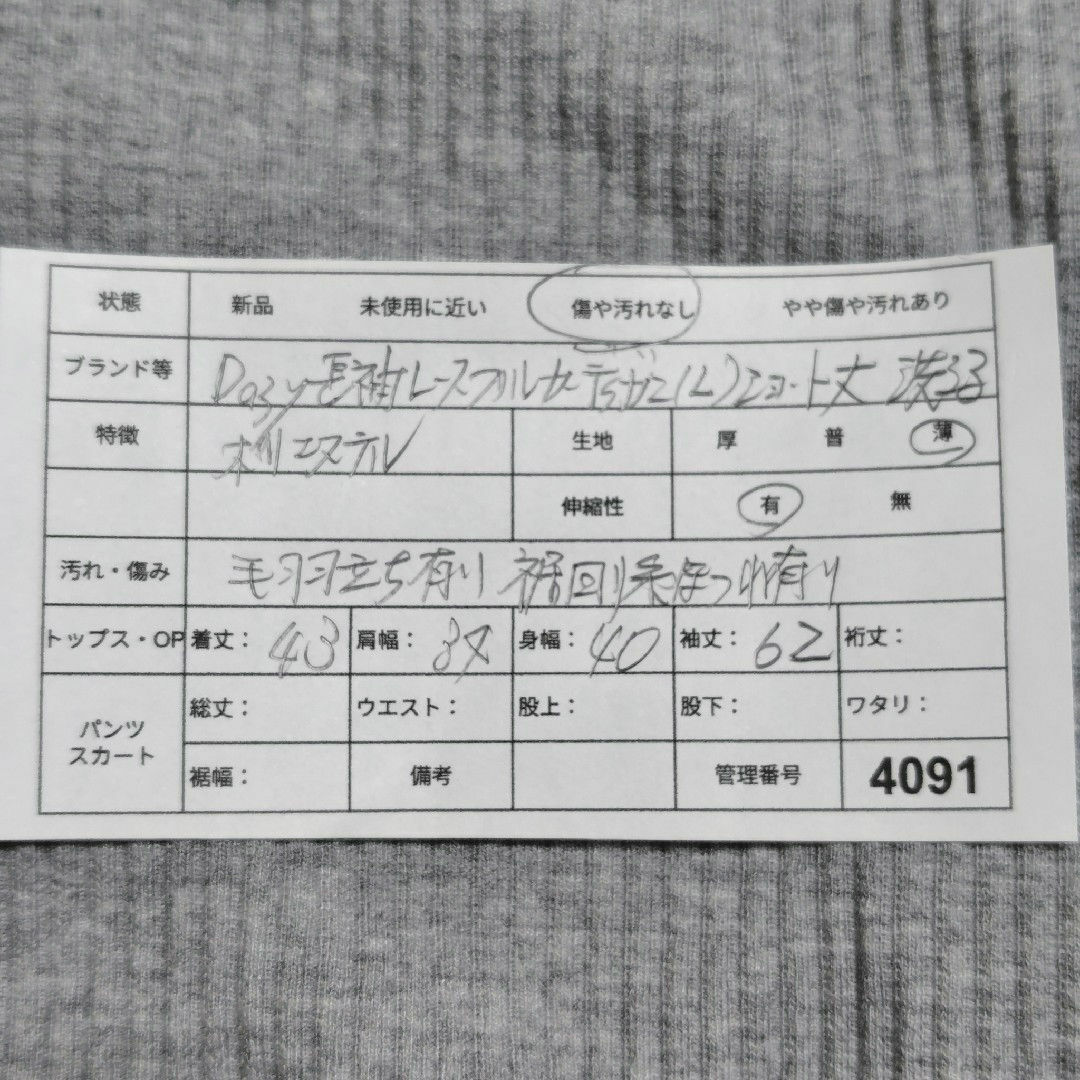 状態 新品 未使用に近い 傷や汚れなし やや傷や汚れあり
ブランド等 Dazy 長袖 レースフルカーディガン (L) ショート丈 洗える
特徴 ポリエステル 生地 厚 普 薄
伸縮性 有 無
汚れ・傷み 毛羽立ち有り 裾回り糸ほつれ有り
トップス・OP 着丈: 43 肩幅: 34 身幅: 40 袖丈: 62 裄丈:
パンツ スカート
総丈: ウエスト: 股上: 股下: ワタリ:
裾幅: 備考 管理番号 4091